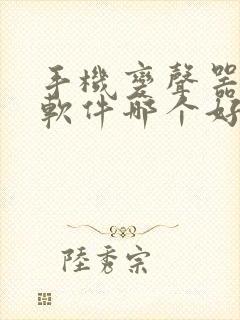 手機變聲器
軟件哪个好
陸秀宗